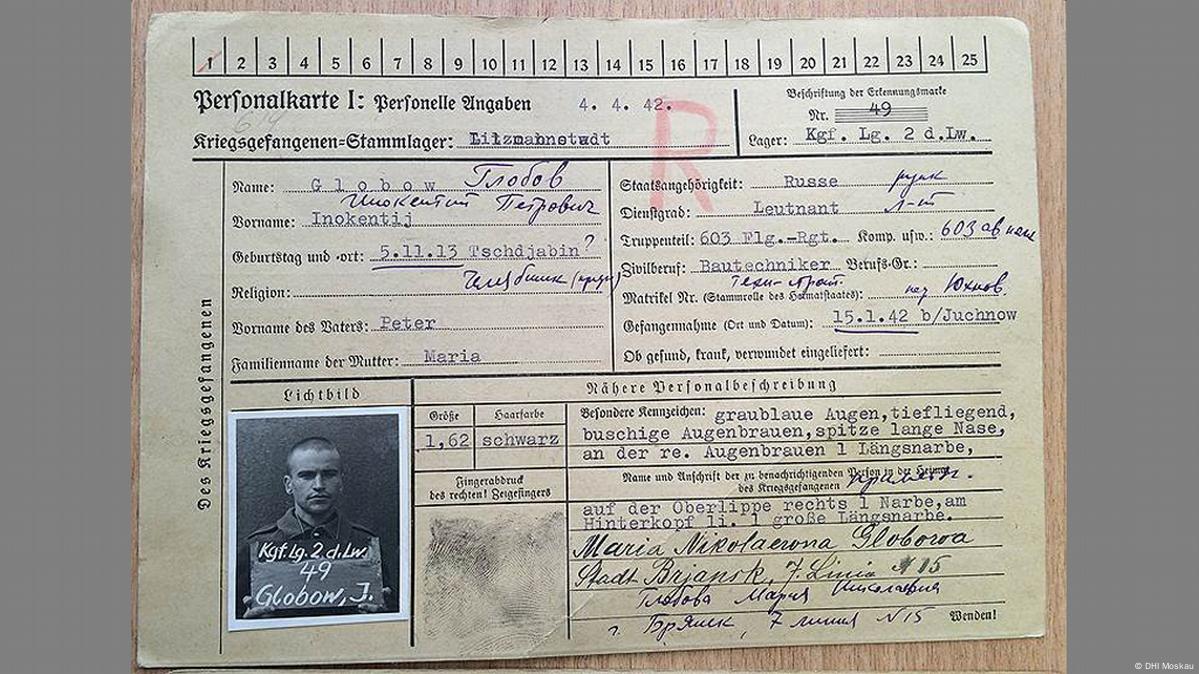 1 2 3 4 5 6 7 8 9 10 11 12 13 14 15 16 17 18 19 20 21 22 23 24 25
Personalkarte I: Personelle Angaben 4. 4. 42.
R
Beschriftung der Erkennungsmarke
Nr. 49
Kriegsgefangenen-Stammlager: Litzmannstadt
Lager: Kgf. Lg. 2 d.Lw.
Des Kriegsgefangenen
Name: Globow Глобов
Иннокентий Петрович
Vorname: Inokentij
Geburtstag und -ort: 5.11.13 Tschdjabin ?
Religion:
Vorname des Vaters: Peter
Familienname der Mutter: Maria
Staatsangehörigkeit: Russe
Dienstgrad: Leutnant Л-т
Truppenteil: 603 Flg.-Rgt. Komp. usw.: 603
Zivilberuf: Bautechniker Berufs-Gr.:
Matrikel Nr. (Stammrolle des Heimatstaates): Юхнов.
Gefangennahme (Ort und Datum): 15.1.42 b/Juchnow
Ob gesund, krank, verwundet eingeliefert:
Lichtbild
Kgf.Lg.2 d.Lw
49
Globow, J.
Nähere Personalbeschreibung
Größe Haarfarbe
1,62 schwarz
Fingerabdruck
des rechten! Zeigefingers
Besondere Kennzeichen: graublaue Augen,tiefliegend,
buschige Augenbrauen,spitze lange Nase,
an der re. Augenbrauen 1 Längsnarbe,
Name und Anschrift der zu benachrichtigenden Person in der Heimat
des Kriegsgefangenen
auf der Oberlippe rechts 1 Narbe,am
Hinterkopf li. 1 große Längsnarbe.
Maria Nikolaerona Globoroa
Stadt Brjansk, 7. Linia № 15
Глобова Мария Николаевна
г. Брянск, 7 линия N 15
Wenden!
© DHI Moskau